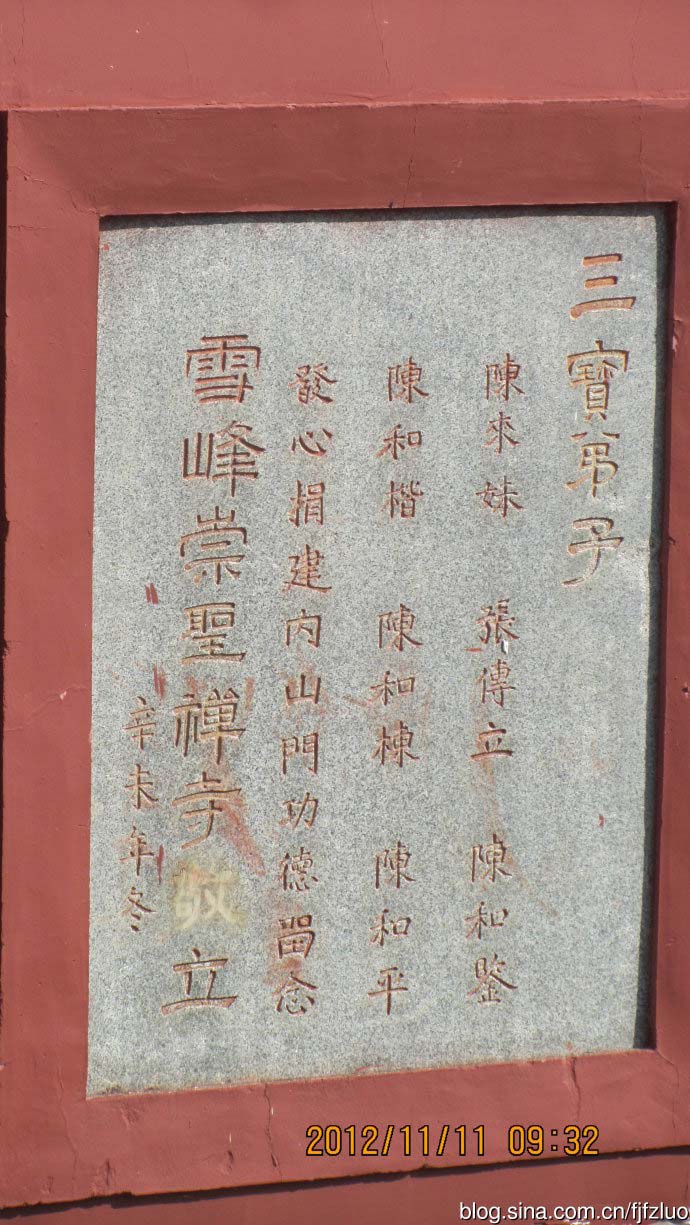 三寶弟子
陳來妹 張傳立 陳和鑒
陳和楷 陳和棟 陳和平
發心捐建内山門功德留念
雪峰崇聖禅寺敬立
辛未年冬
2012/11/11 09:32
blog.sina.com.cn/fjfzluo